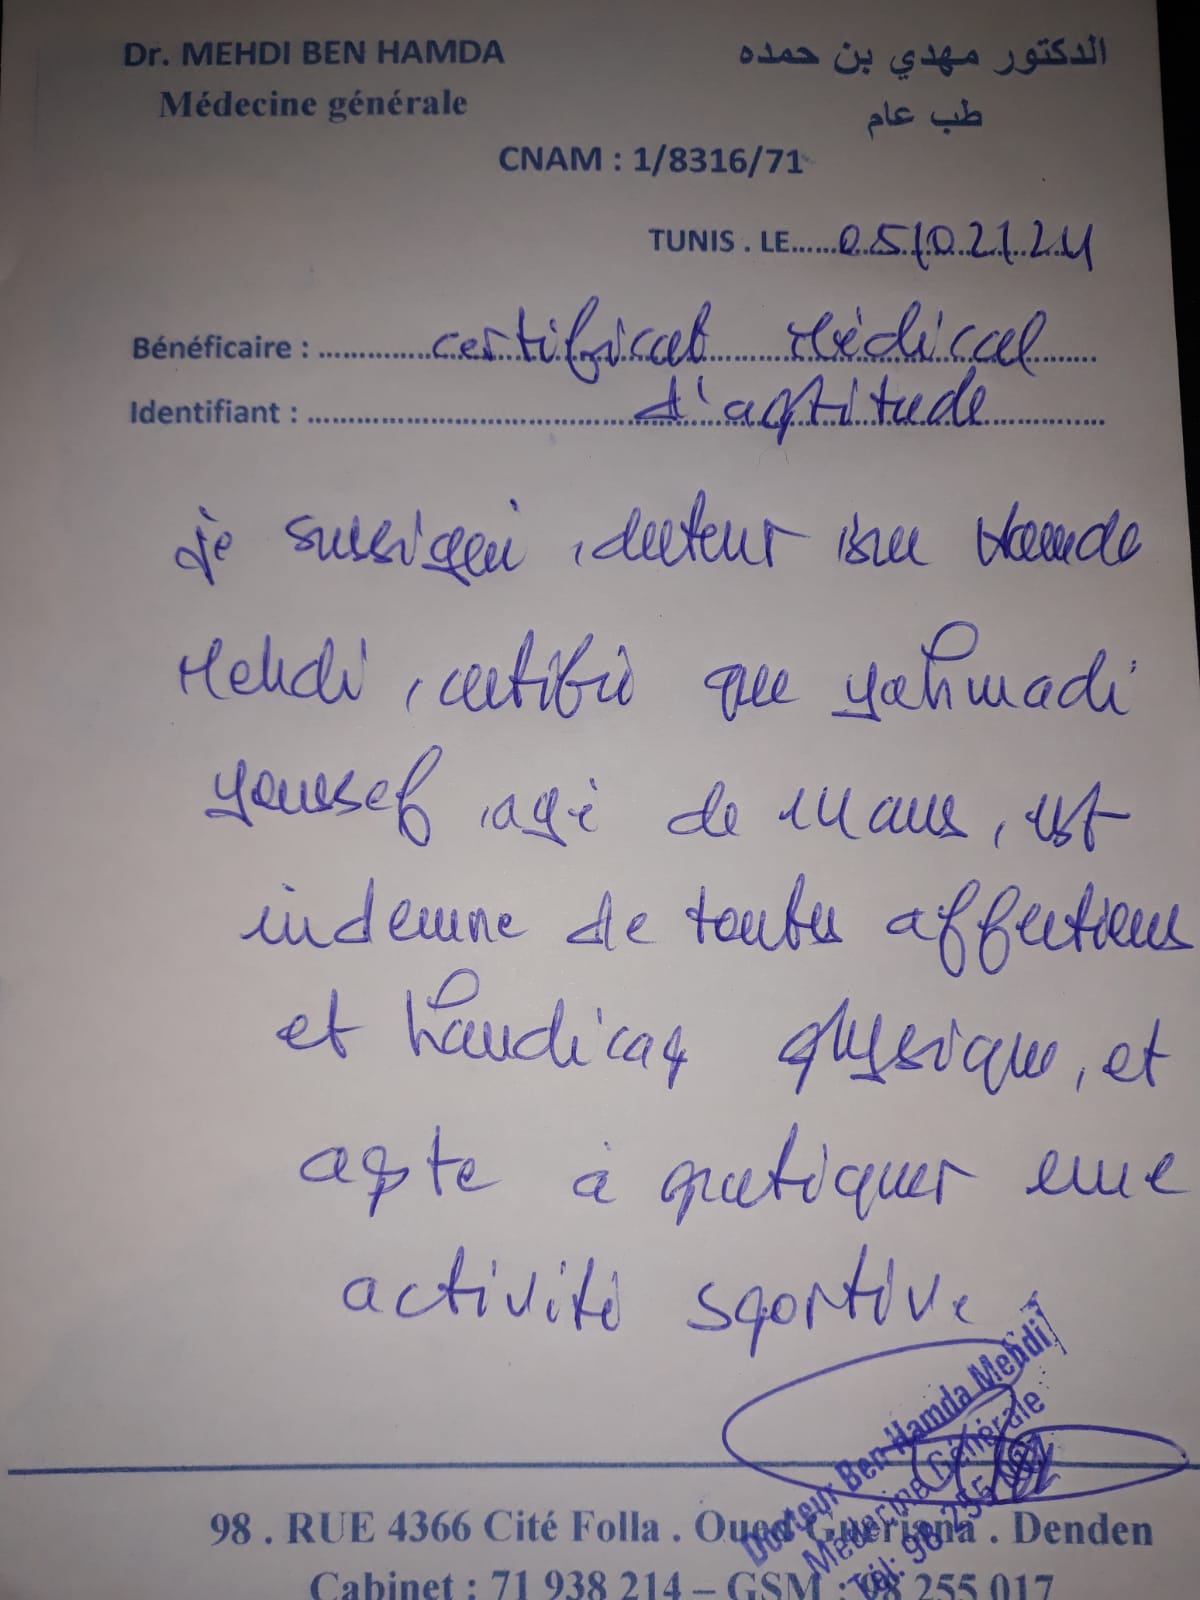 Dr. MEHDI BEN HAMDA
الدكتور مهدي بن حمده
Médecine générale
طب عام
CNAM : 1/8316/71
TUNIS . LE......05/02/24
Bénéficaire : certificat Médical
Identifiant : d'aptitude
je sussigné, docteur Ben Hamda
Mehdi, certifie que Yahmadi
Youssef, agé de 14 ans, est
indemne de toutes affections
et handicap physique, et
apte à pratiquer une
activité sportive.
Docteur Ben Hamda Mehdi
Médecine Générale
Tél: 98 255 017
98 . RUE 4366 Cité Folla . Oued Gueriana . Denden
Cabinet : 71 938 214 – GSM : 98 255 017